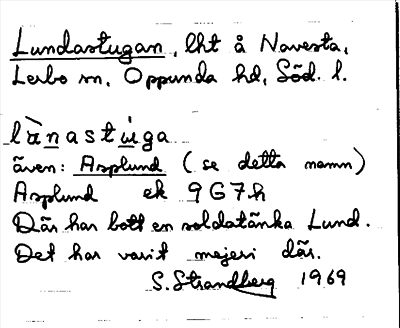 Lundastugan, lht å Navesta,
Lerbo sn, Oppunda hd, Söd. l.
lànastùga
även: Asplund (se detta namn)
Asplund ek 9G7h
Där har bott en soldatänka Lund.
Det har varit mejeri där.
S. Strandberg 1969